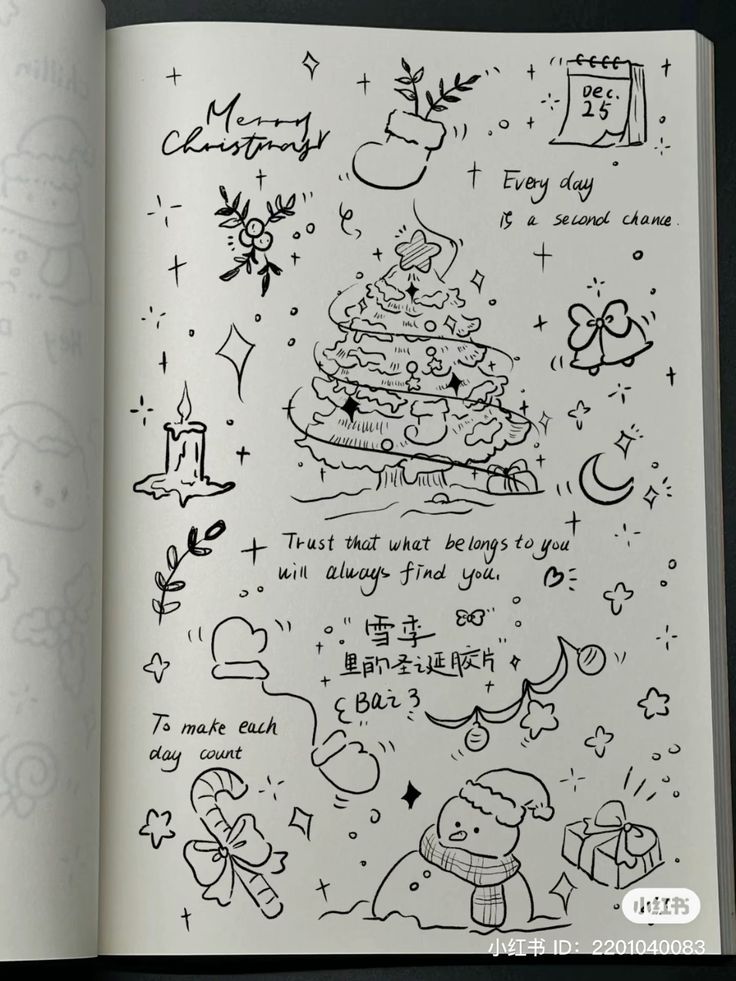 Merry
Christmas
Dec.
25
Every day
is a second chance.
Trust that what belongs to you
will always find you.
"雪季
里的圣诞胶片
To make each
day count
小红书
小红书 ID: 2201040083